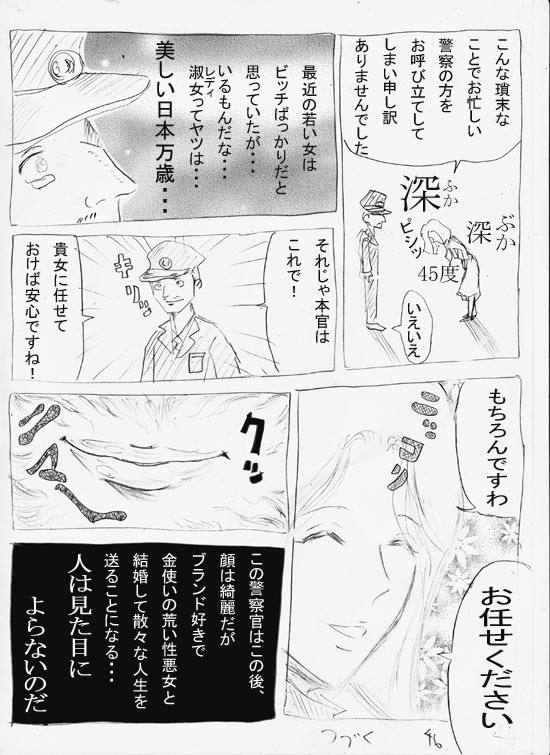 こんな瑣末な
ことでお忙しい
警察の方を
お呼び立てして
しまい申し訳
ありませんでした
深
ふか
深
ぶか
ピシッ
45度
いえいえ
最近の若い女は
ビッチばっかりだと
思っていたが・・・
いるもんだな・・・
レディ
淑女ってヤツは・・・
美しい日本万歳・・・
それじゃ本官は
これで！
キリッ
貴女に任せて
おけば安心ですね！
もちろんですわ
ニコッ
お任せください
クッ
ニマ～
この警察官はこの後、
顔は綺麗だが
ブランド好きで
金使いの荒い性悪女と
結婚して散々な人生を
送ることになる・・・
人は見た目に
よらないのだ
つづく